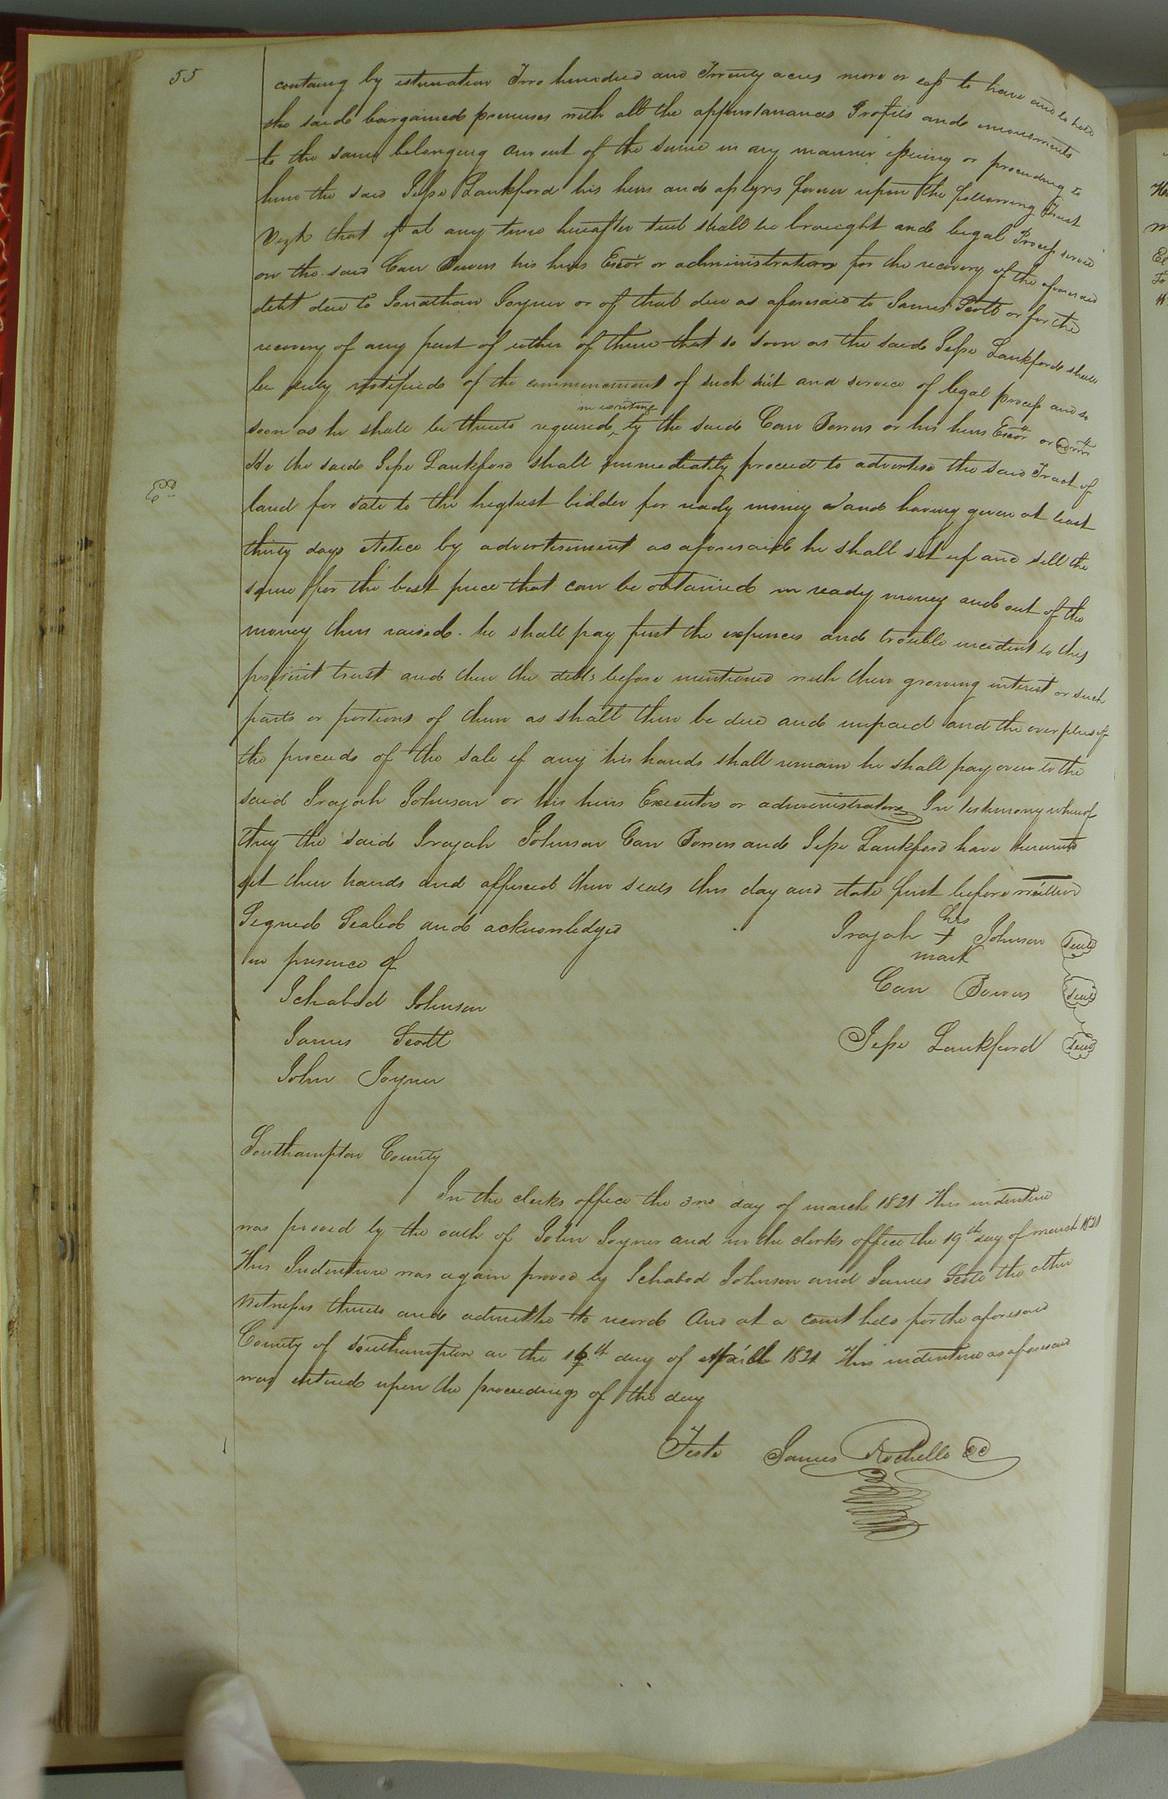 55
containg by estimation Two hundred and Twenty acres more or less to have and to hold
the said bargained premises with all the appurtanances Profits and emoluments
to the same belonging or out of the same in any manner issuing or proceeding to
him the said Jesse Lankford his heirs and assigns forever upon the following Trust
Vizt that if at any time hereafter suit shall be brought and legal Process served
on the said Carr Bowers his heirs Exor or administrators for the recovery of the aforesaid
debt due to Jonathan Joyner or of that due as aforesaid to James Scott or for the
recovery of any part of either of them that so soon as the said Jesse Lankford shall
be duly notified of the commencement of such suit and service of legal process and so
in writing
soon as he shall be thereto required by the said Carr Bowers or his heirs Exor or Admr
He the said Jesse Lankford shall immediately proceed to advertise the said Tract of
land for sale to the highest bidder for ready money and having given at least
thirty days Notice by advertisement as aforesaid he shall set up and sell the
same for the best price that can be obtained in ready money and out of the
money then raised he shall pay first the expences and trouble incedent to this
present trust and then the debts before mentioned with their growing interest or such
parts or portions of them as shall then be due and unpaid and the overplus of
the proceeds of the sale if any his hands shall remain he shall pay over to the
said Irajah Johnson or his heirs Executors or administrators In testimony whereof
they the said Irajah Johnson Carr Bowers and Jesse Lankford have hereunto
set their hands and affixed their seals this day and date first before written
Signed Sealed and acknowledged
in presence of
Ichabod Johnson
James Scott
John Joyner
his
Irajah + Johnson seal
mark
Carr Bowers seal
Jesse Lankford seal
Southampton County
In the clerks office the 3rd day of march 1821 This indenture
was proved by the oath of John Joyner and in the clerks office the 19th day of march 1821
This Indenture was again proved by Ichabod Johnson and James Scott the other
witnesses thereto and admitted to record And at a court held for the aforesaid
County of Southampton on the 16th day of April 1821 This indenture as aforesaid
was entered upon the proceedings of the day
Teste James Rochelle CC